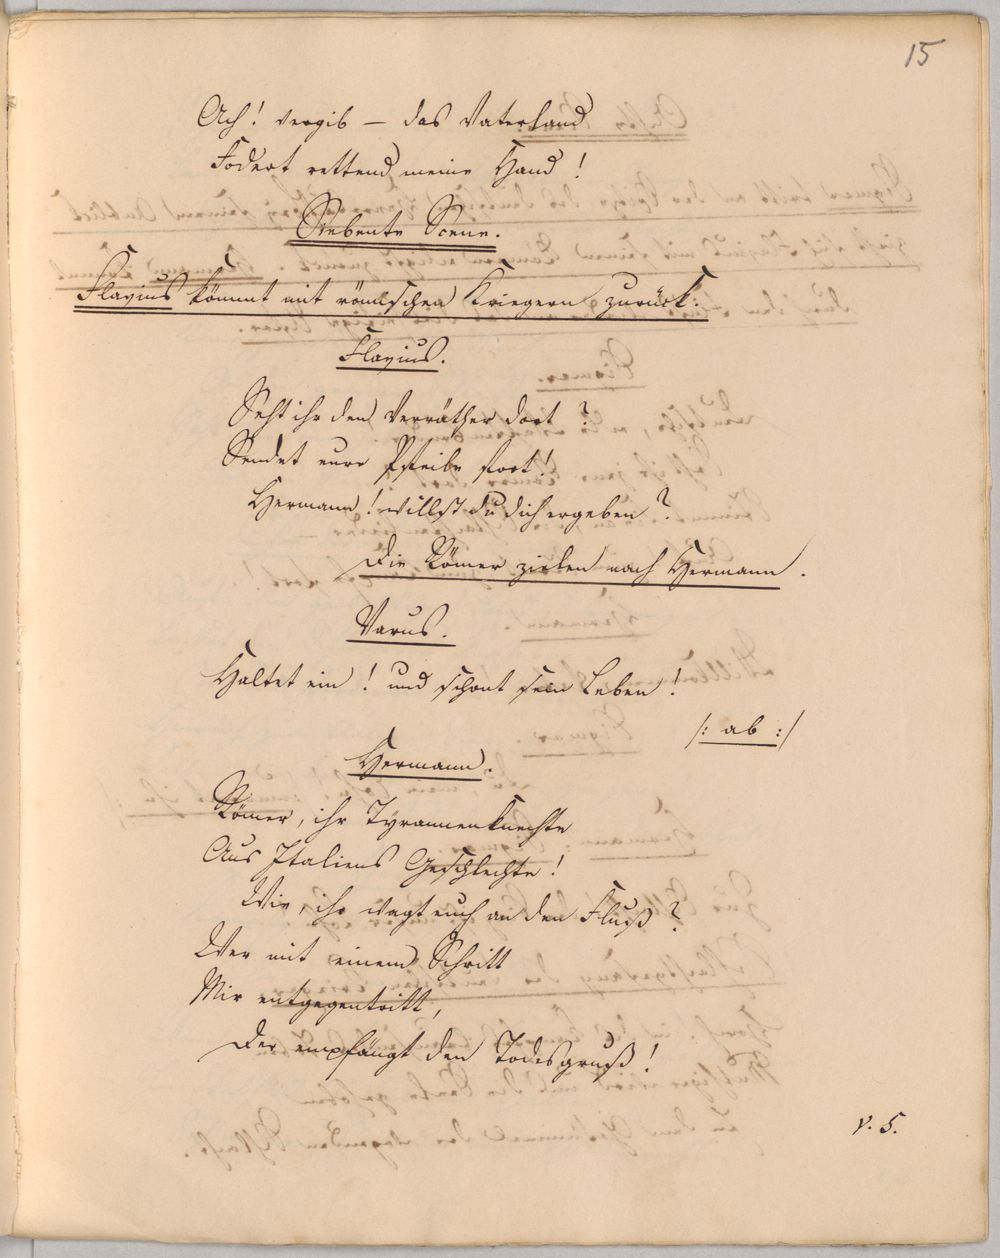 15
Ach! vergib – das Vaterland
Fodert rettend meine Hand!
Siebente Scene.
Flavius kömmt mit römischen Kriegern zurück.
Flavius.
Seht ihr den Verräther dort?
Sendet eure Pfeile fort!
Hermann! willst du dich ergeben?
Die Römer zielen nach Hermann.
Varus.
Haltet ein! und schont sein Leben!
/: ab :/
Hermann.
Römer, ihr Tyrannenknechte
Aus Italiens Geschlechte!
Wie, ihr wagt euch an den Fluß?
Wer mit einem Schritt
Mir entgegentritt,
Der empfängt den Todesgruß!
V. S.